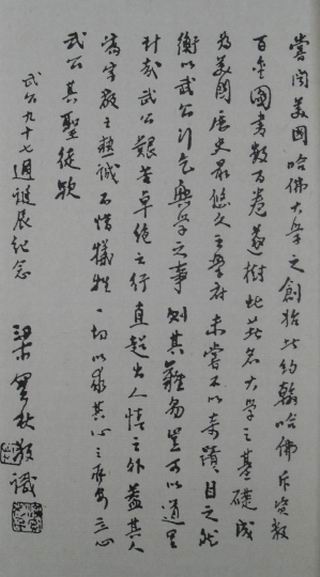 嘗聞美國哈佛大學之創始於約翰哈佛斥資數
百金圖書數百卷遂樹此著名大學之基礎成
為美國歷史最悠久之學府未嘗不以奇蹟目之然
衡以武公行乞興學之事則其難易豈可以道里
計哉武公艱苦卓絕之行直超出人情之外蓋其人
宗教之熱誠不惜犧牲一切以求其心之所安
武公其聖徒歟
武公九十七週誕辰紀念
梁實秋敬識